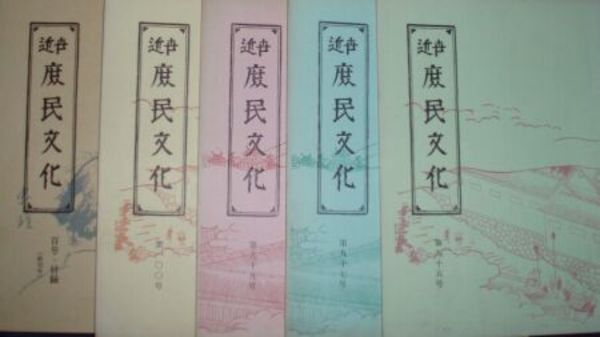 近世庶民文化
百号・付録
近世庶民文化
第一〇〇号
近世庶民文化
第九十九号
近世庶民文化
第九十七号
近世庶民文化
第九十五号